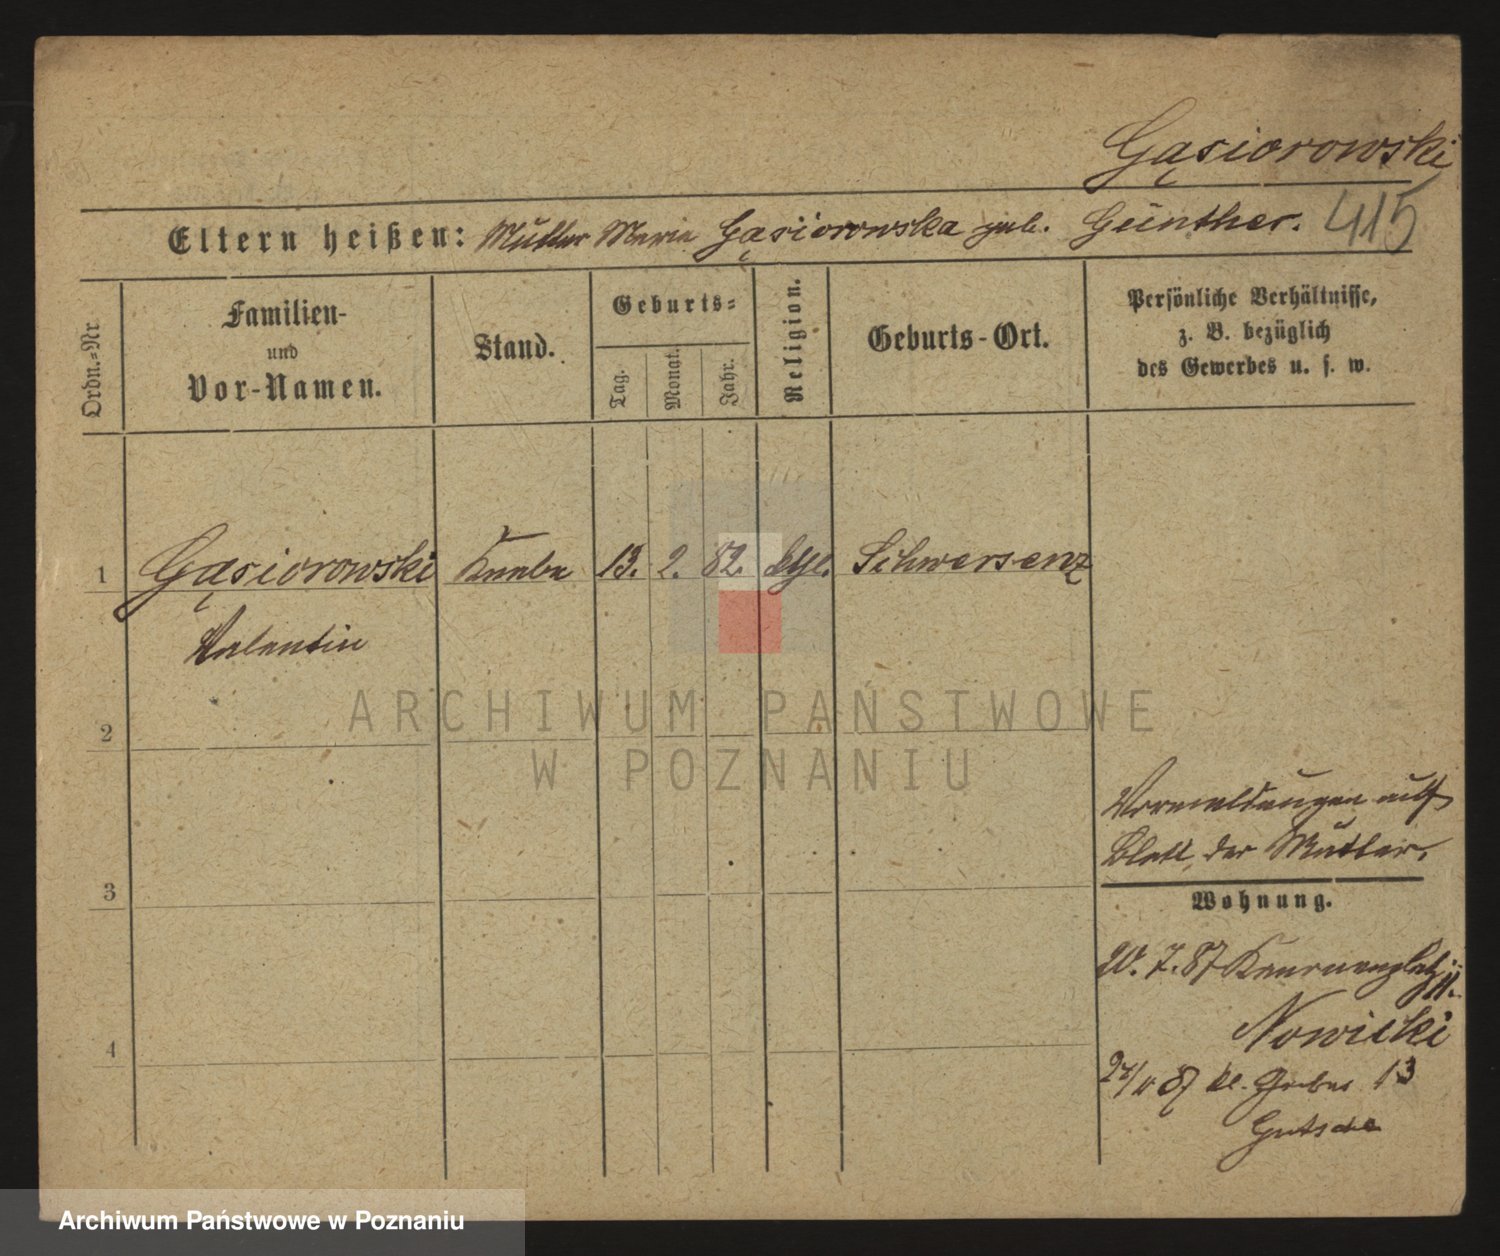 Gąsiorowski
Eltern heißen: Mutter Marie Gąsiorowska geb. Günther. 415
Ordn.-Nr
Familien-
und
Vor-Namen.
Stand.
Geburts-
Tag.
Monat.
Jahr.
Religion.
Geburts-Ort.
Persönliche Verhältnisse,
z. B. bezüglich
des Gewerbes u. s. w.
1 Gąsiorowski Knabe 13. 2. 82. ktl. Schwersenz
Valentin
2
3
4
Vormeldungen auf
Blatt der Mutter.
Wohnung.
20. 7. 87 Kanonenplatz 11.
Nowicki
87 kl. Gerber 13
Gutsche
ARCHIWUM PAŃSTWOWE
W POZNANIU
Archiwum Państwowe w Poznaniu